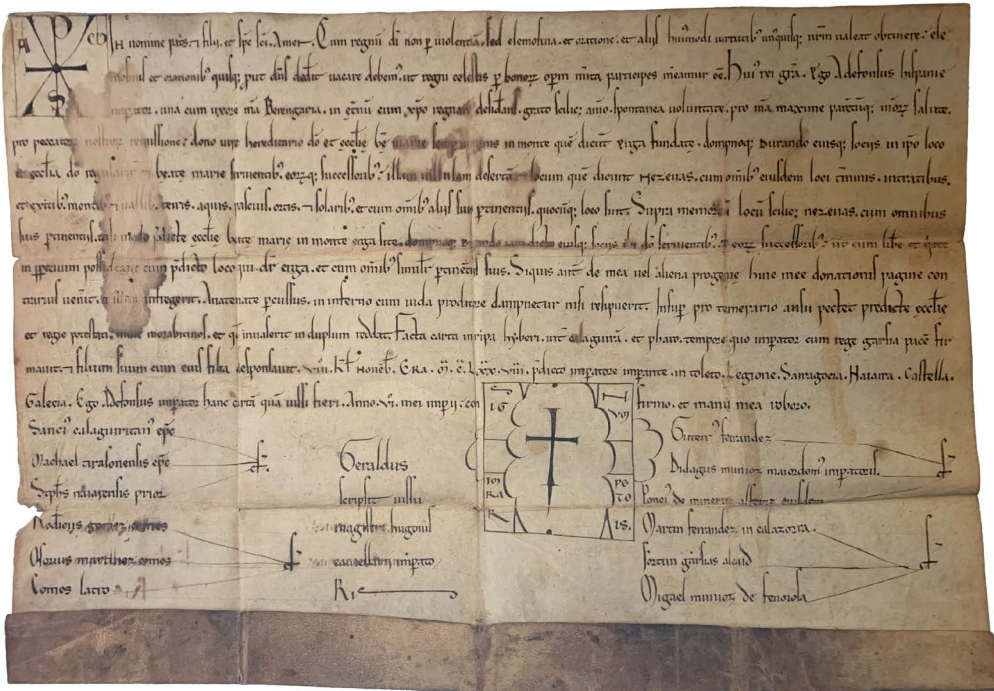 In nomine patris, & filii, et spiritus sancti. Amen. Cum regnum dei non per violentiam, sed elemosina, et oratione, et aliis huiusmodi virtutibus unusquisque nostrum valeat obtinere: ele
mosinis et orationibus quisque prout dominus dederit vacare debemus, ut regni celestis per bonorum operum merita participes mereamur esse. Huius rei gratia. Ego Adefonsus hispanie
imperator, una cum uxore mea Berengaria, in eternum cum christo regnare desiderans, grato scilicet animo, spontanea voluntate, pro mea maxime parentumque meorum salute,
pro peccatorum nostrorum remissione: dono iure hereditario deo et ecclesie beate marie semper virginis in monte quem dicunt yirga fundate, dompnoque durando eiusque sociis in ipso loco
ecclesia deo regulariter & beate marie servientibus, eorumque successoribus: illam villulam desertam & locum quem dicunt Nezevas, cum omnibus eiusdem loci terminis, intratibus,
et exitibus, montibus & vallibus, terris, aquis, pascuis, ortis, & solaribus, et cum omnibus aliis suis pertinentiis, quocumque loco sint. Supra memoratum locum scilicet nezevas, cum omnibus
suis pertinentiis, tali modo predicte ecclesie beate marie in monte erga site, dompnoque durando iam dicto eiusque sociis ibi deo servientibus, & eorum successoribus: ut eum libere et quiete
in perpetuum possideant cum predicto loco qui dicitur erga, et cum omnibus similiter pertinentiis suis. Siquis autem de mea vel aliena progenie huic mee donationis pagine con
trarius venerit, & illam infregerit, Anatemate percussus, in inferno cum iuda proditore dampnetur nisi resipuerit. Insuper pro temerario ausu pectet predicte ecclesie
et regie potestati mille morabitinos, et quod invaserit in duplum reddat. Facta carta in ripa hyberi, inter calagurram, et pharo, tempore quo imperator cum rege garsia pacem fir
mavit, & filium suum cum eius filia desponsavit. VIII. Kal. Novemb. Era. M. C. LXX.VIII. predicto imperatore imperante, in toleto, Legione, Sarragocia, Naiara, Castella,
Galecia. Ego Adefonsus imperator hanc cartam quam iussi fieri, Anno. VI. mei imperii: con firmo, et manu mea roboro.
SIG I VM
IM RA PE TO
R IS.
Sancius calagurritanus episcopus
Machael tirasonensis episcopus
Stephanus naiarensis prior
Rodericus gomez comes
Osorius martinez comes
Comes latro
Geraldus
scripsit iussu
magistri hugonis
cancellarii imperato
Ris
Guterrius ferrandez
Didagus munioz maiordomus imperatoris.
Poncius de minerva alferiz eiusdem
Martin ferrandez in calazorra.
Fortun garsias alcaid
Migael munioz de fenoiola